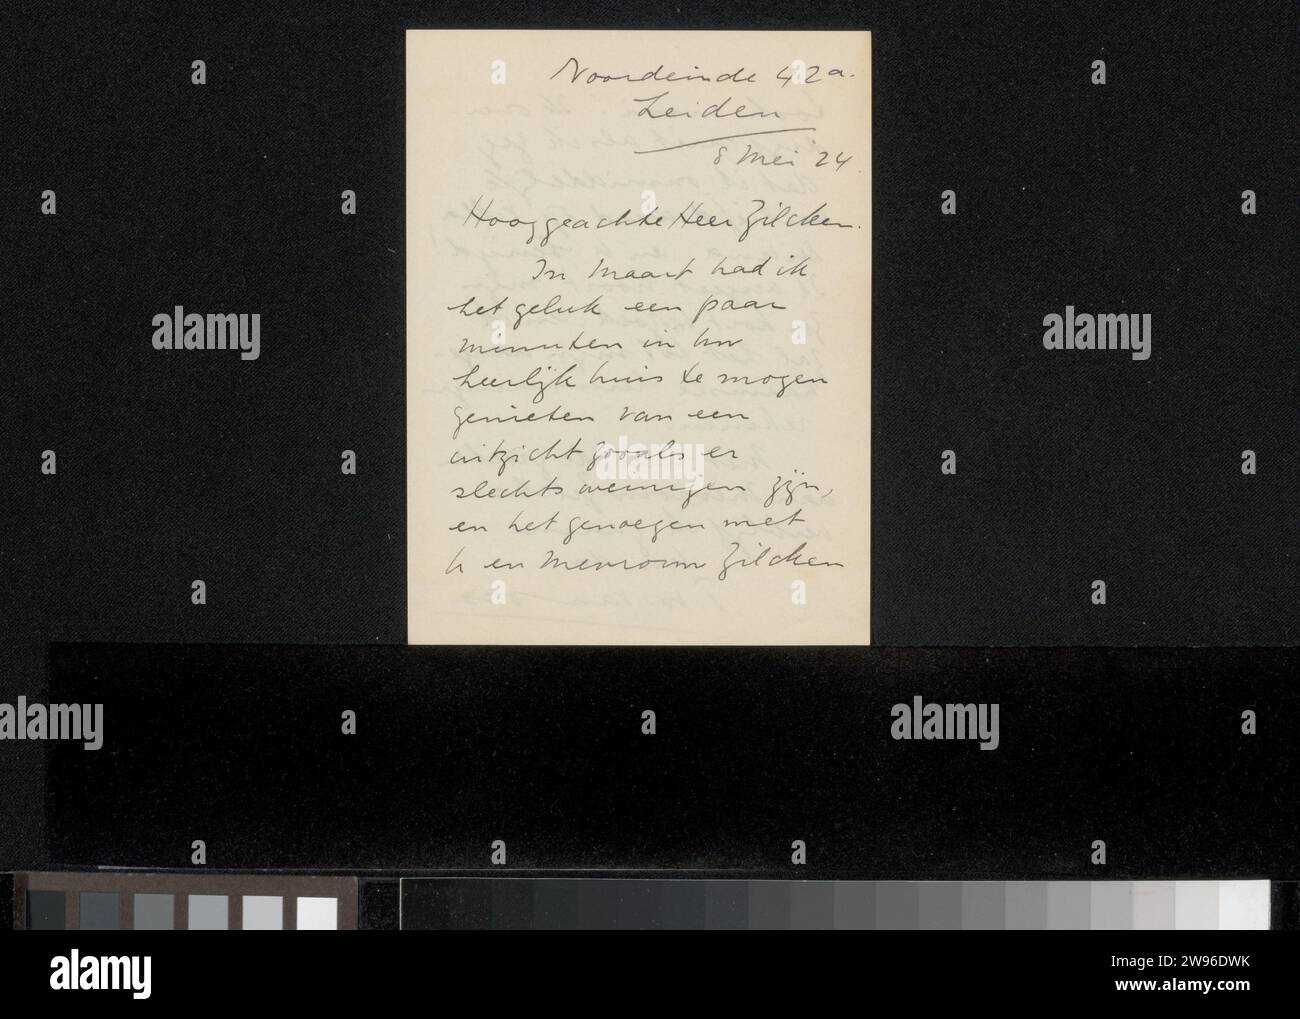 Noordeinde 42a.
Leiden
8 Mei 24
Hooggeachte Heer Zilcken.
In Maart had ik
het geluk een paar
minuten in Uw
heerlijk huis te mogen
genieten van een
uitzicht zooals er
slechts weinigen zijn,
en het genoegen met
U en Mevrouw Zilcken
alamy
Image ID: 2W96DWK
www.alamy.com